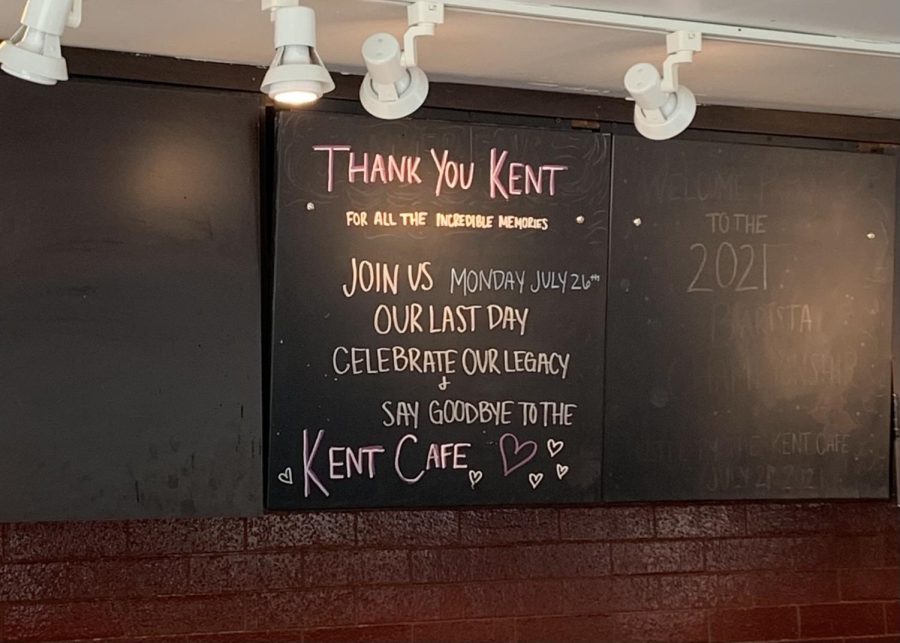 THANK YOU KENT
FOR ALL THE INCREDIBLE MEMORIES
JOIN US MONDAY JULY 26th
OUR LAST DAY
CELEBRATE OUR LEGACY
&
SAY GOODBYE TO THE
KENT CAFE
WELCOME
TO THE
2021
BARISTA
THE KENT CAFE